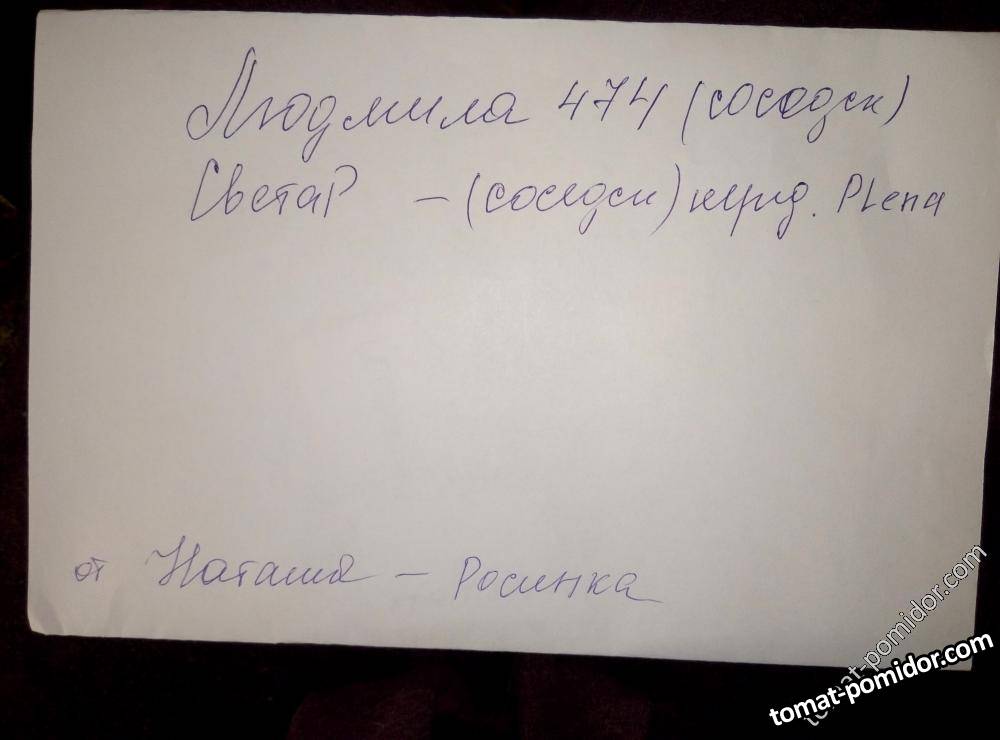 Людмила 474 (сосодск)
СветаР – (соседск) черд. PLena
от Наташа – Росинка
tomat-pomidor.com
tomat-pomidor.com